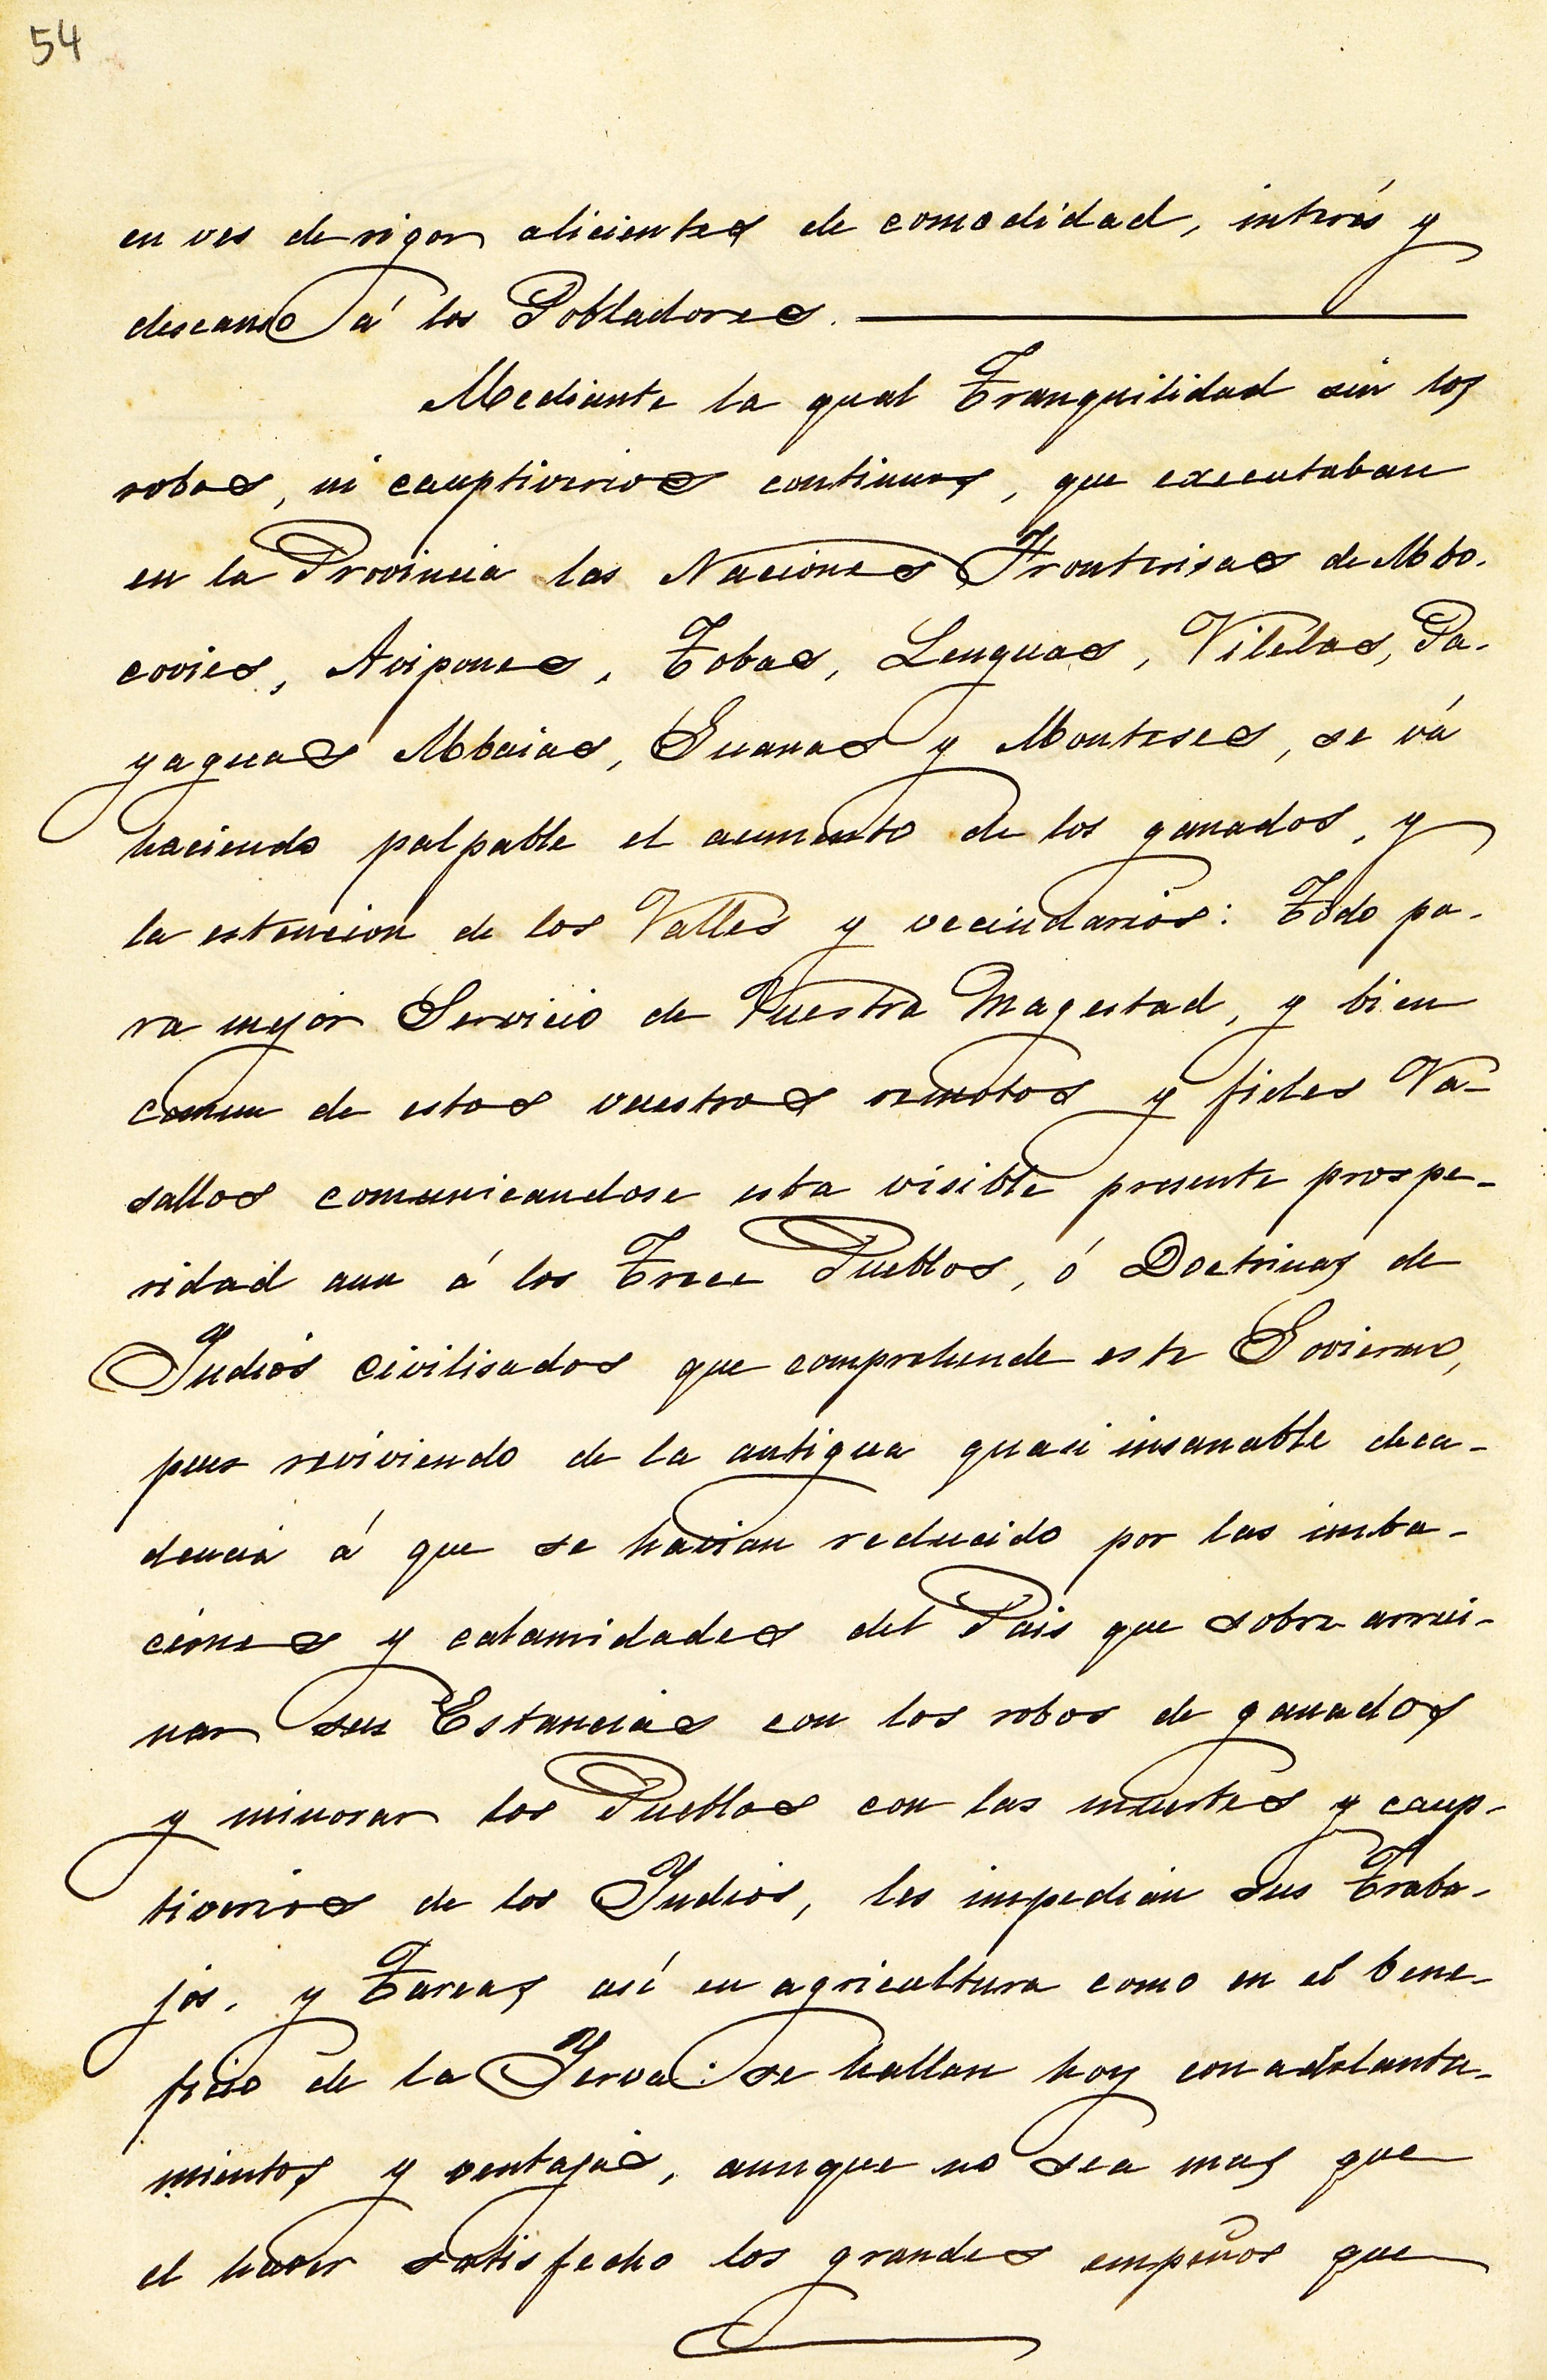 54
en ves de rigor alicientes de comodidad, interés y
descanso á los Pobladores.
Mediante la qual Tranquilidad sin los
robos, ni cauptiverios continuos, que executaban
en la Provincia las Naciones Fronterisas de Mbo-
covies, Avipones, Tobas, Lenguas, Vilelas, Pa-
yaguas Mbaias, Guanas y Monteses, se vá
haciendo palpable el aumento de los ganados, y
la estencion de los Valles y vecindarios: Todo pa-
ra mejor Servicio de Vuestra Magestad, y bien
comun de estos vuestros remotos y fieles Va-
sallos comunicandose esta visible presente prospe-
ridad aun á los Trece Pueblos, ó Doctrinas de
Yndios civilisados que comprehende este Govierno,
pues reviviendo de la antigua quasi insanable deca-
dencia á que se havian reducido por las imba-
ciones y calamidades del Pais que sobre arrui-
nar sus Estancias con los robos de ganados
y minorar los Pueblos con las muertes y caup-
tiverios de los Yndios, les impedian sus Traba-
jos, y Tareas así en agricultura como en el bene-
ficio de la Yerva: se hallan hoy con adelanta-
mientos y ventajas, aunque no sea mas que
el haver satisfecho los grandes empeños que